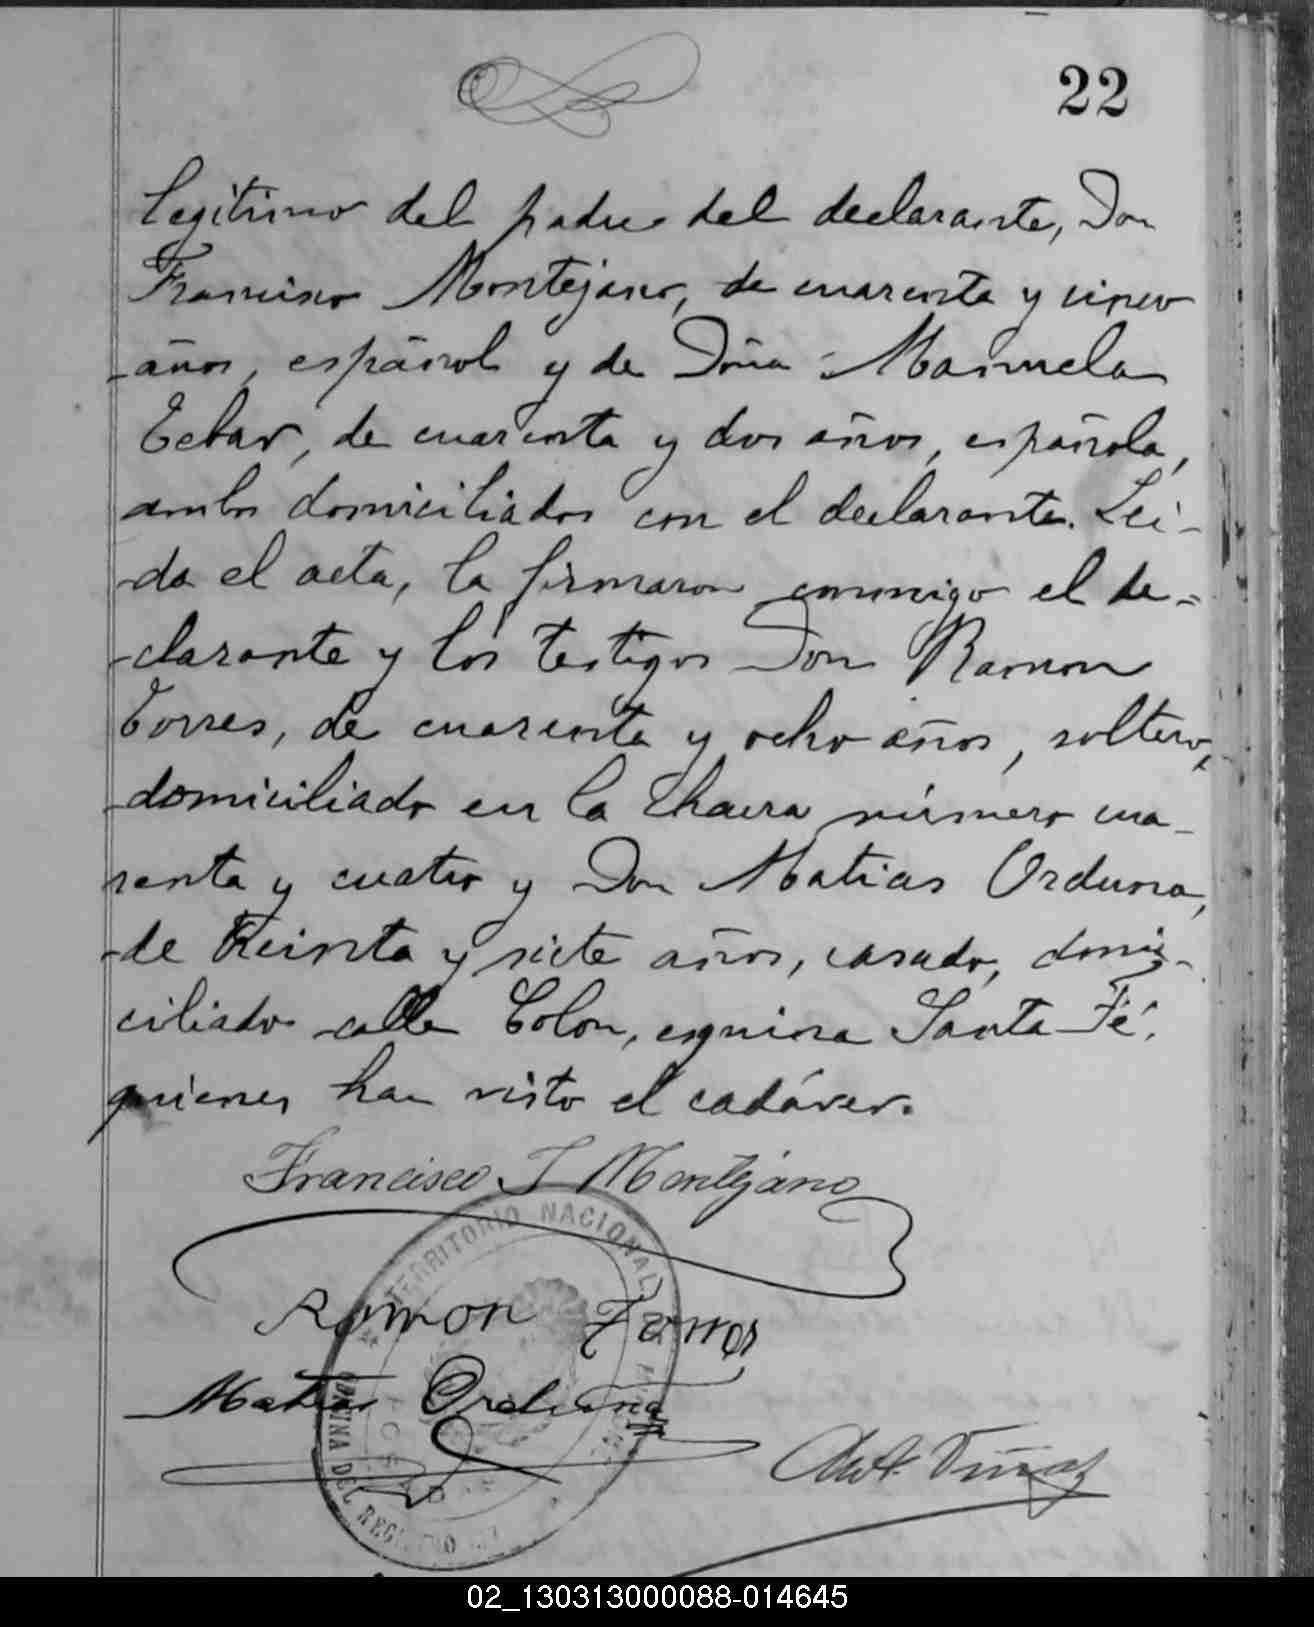 22
legitimo del padre del declarante, Don
Francisco Montejano, de cuarenta y cinco
años, español y de Doña Manuela
de cuarenta y dos años, española,
ambos domiciliados con el declarante. Lei-
da el acta, la firmaron conmigo el de-
clarante y los testigos Don Ramon
Torres, de cuarenta y ocho años, soltero,
domiciliado en la Chacra número cua-
renta y cuatro y Don Matias Orduna,
de treinta y siete años, casado, domi-
ciliado calle Colon, esquina Santa Fé,
quienes han visto el cadáver.
Francisco T Montejano
TERRITORIO NACIONAL
Ramon Torres
Matias Orduna
OFICINA DEL REGISTRO
02_130313000088-014645